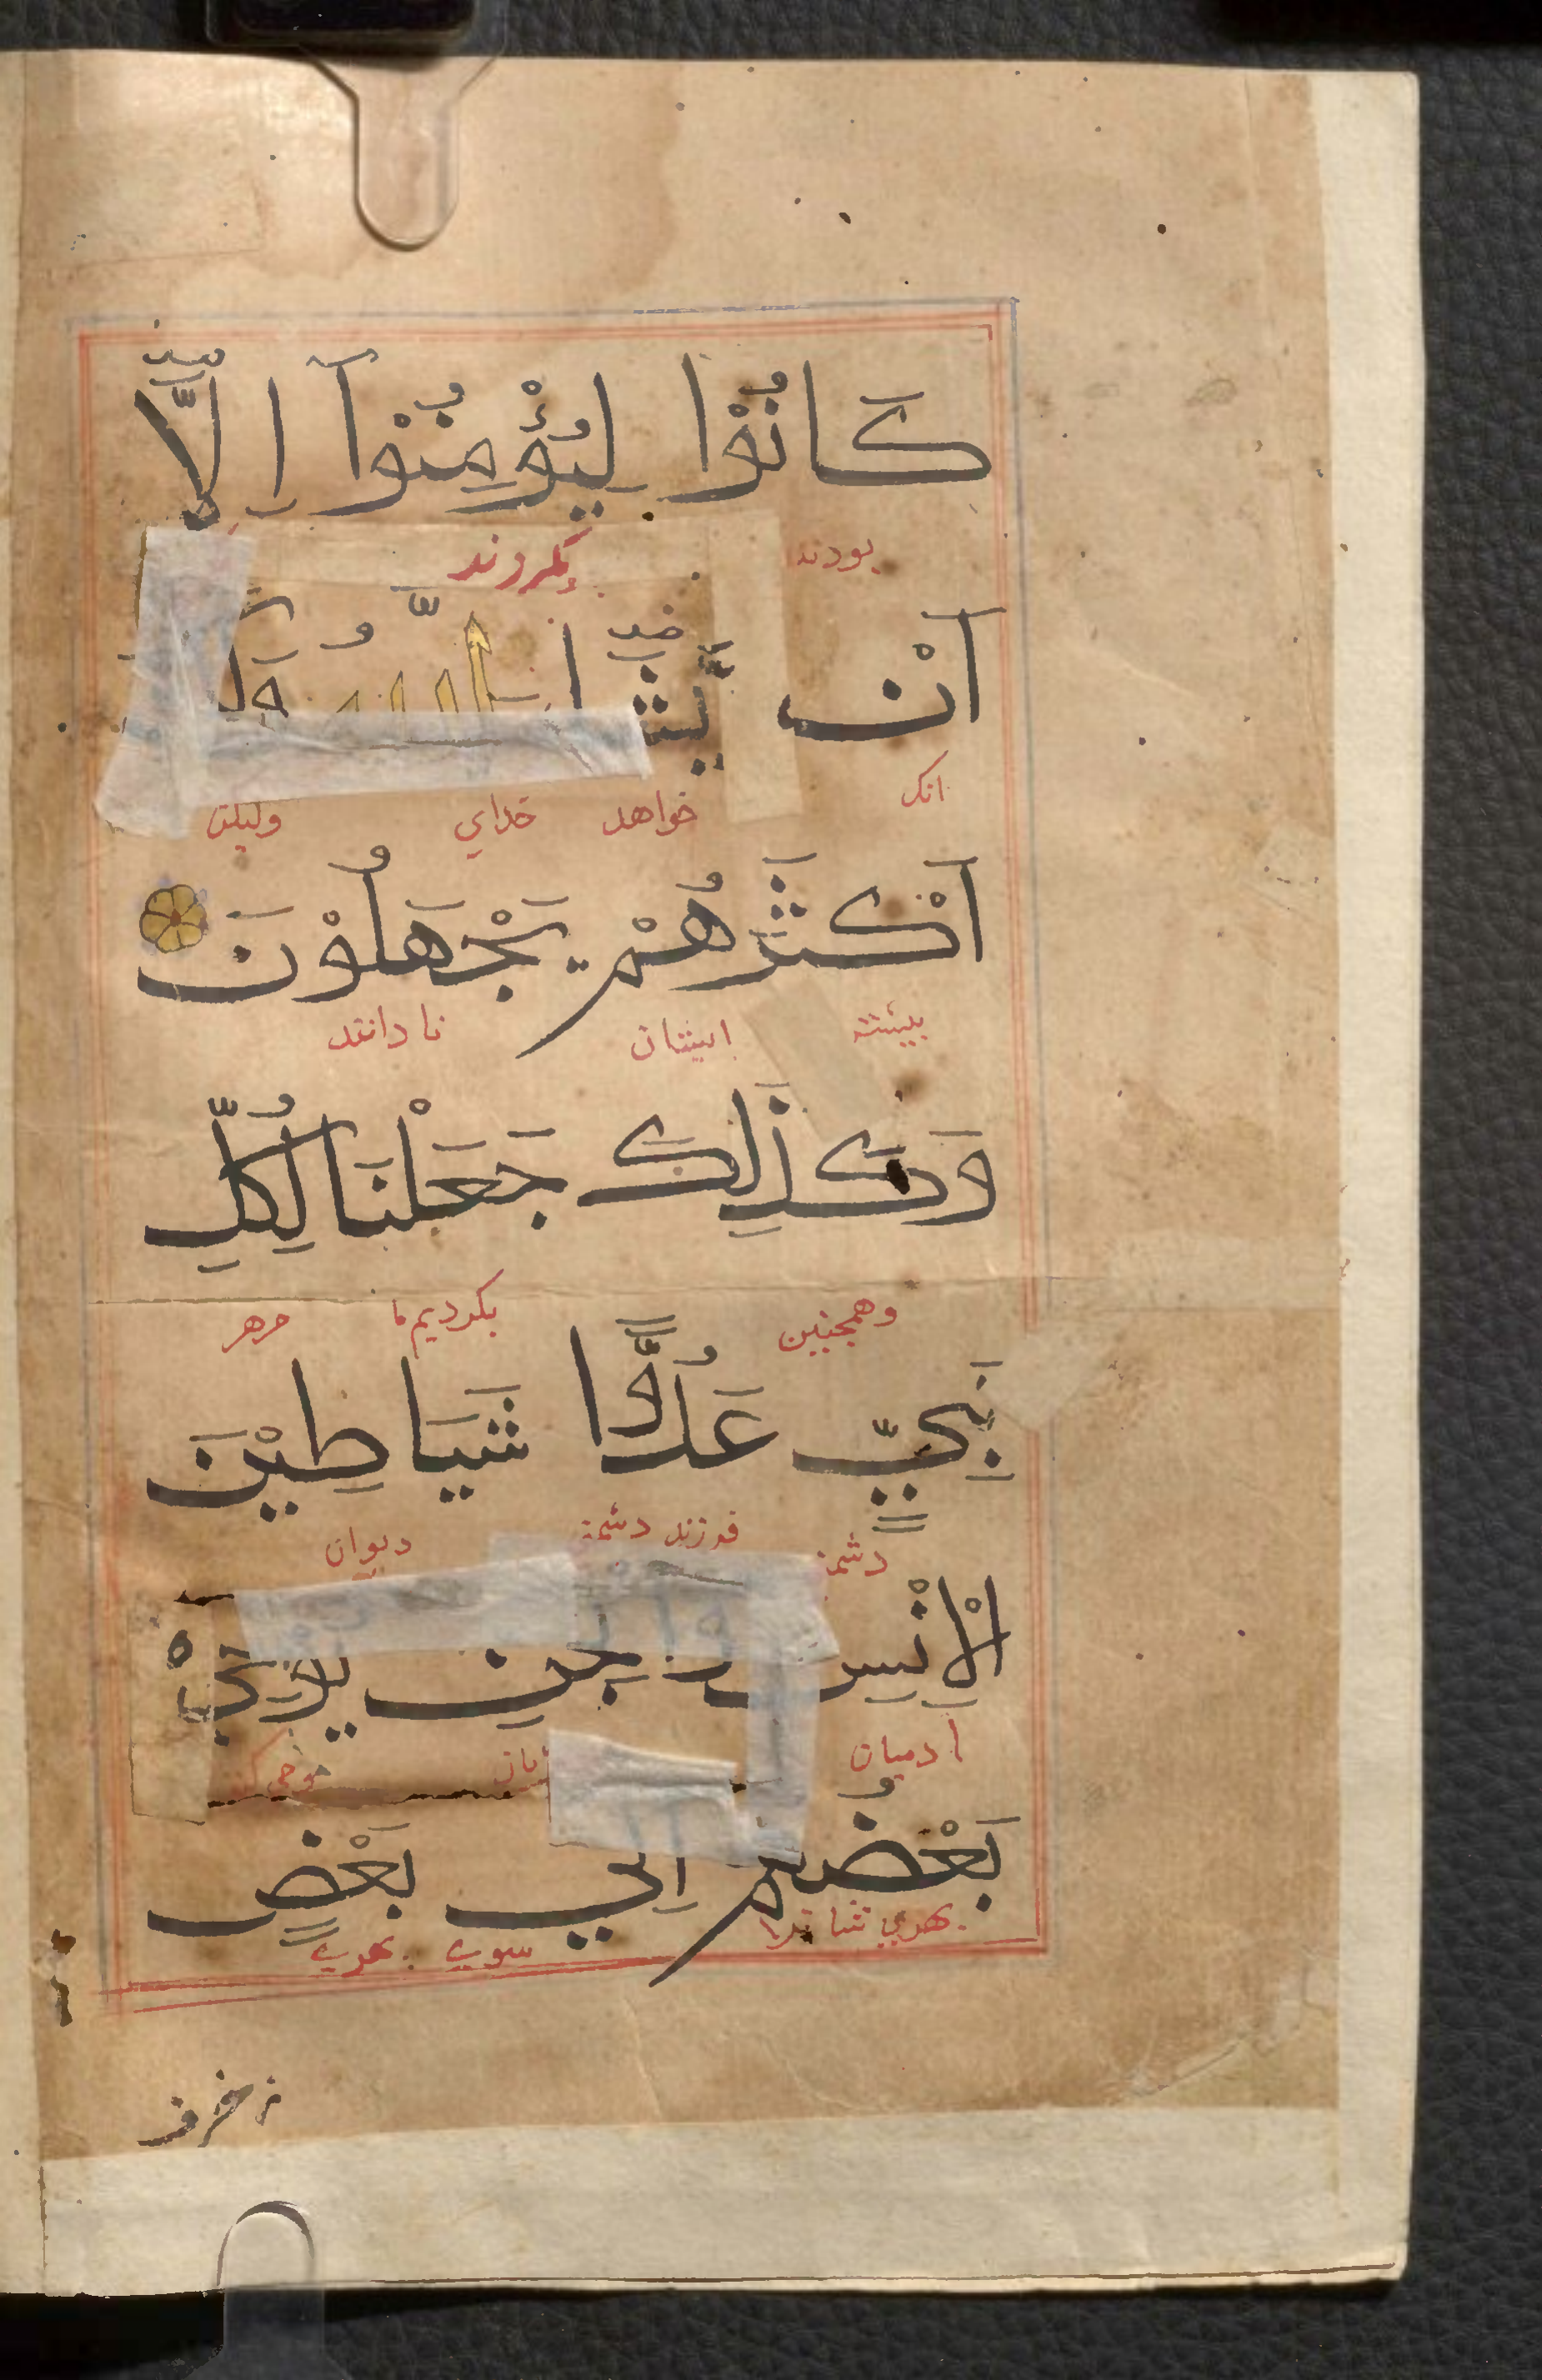 كَانُوْا لِيُؤْمِنُوْآ اِلَّآ
بودند بگروند
اَنْ يَّشَا اللّٰهُ
انک خواهد خدای ولیکن
اَكْثَرُهُمْ يَجْهَلُوْنَ
بیشتر ایشان نادانند
وَكَذٰلِكَ جَعَلْنَا لِكُلِّ
وهمچنین بکردیم ما مرهر
نَبِيٍّ عَدُوًّا شَيَاطِيْنَ
دشمن فرزند دشمن دیوان
الْاِنْسِ وَالْجِنِّ يُوْحِيْ
آدمیان وحی
بَعْضُهُمْ اِلٰي بَعْضٍ
سوی بهری
زخرف